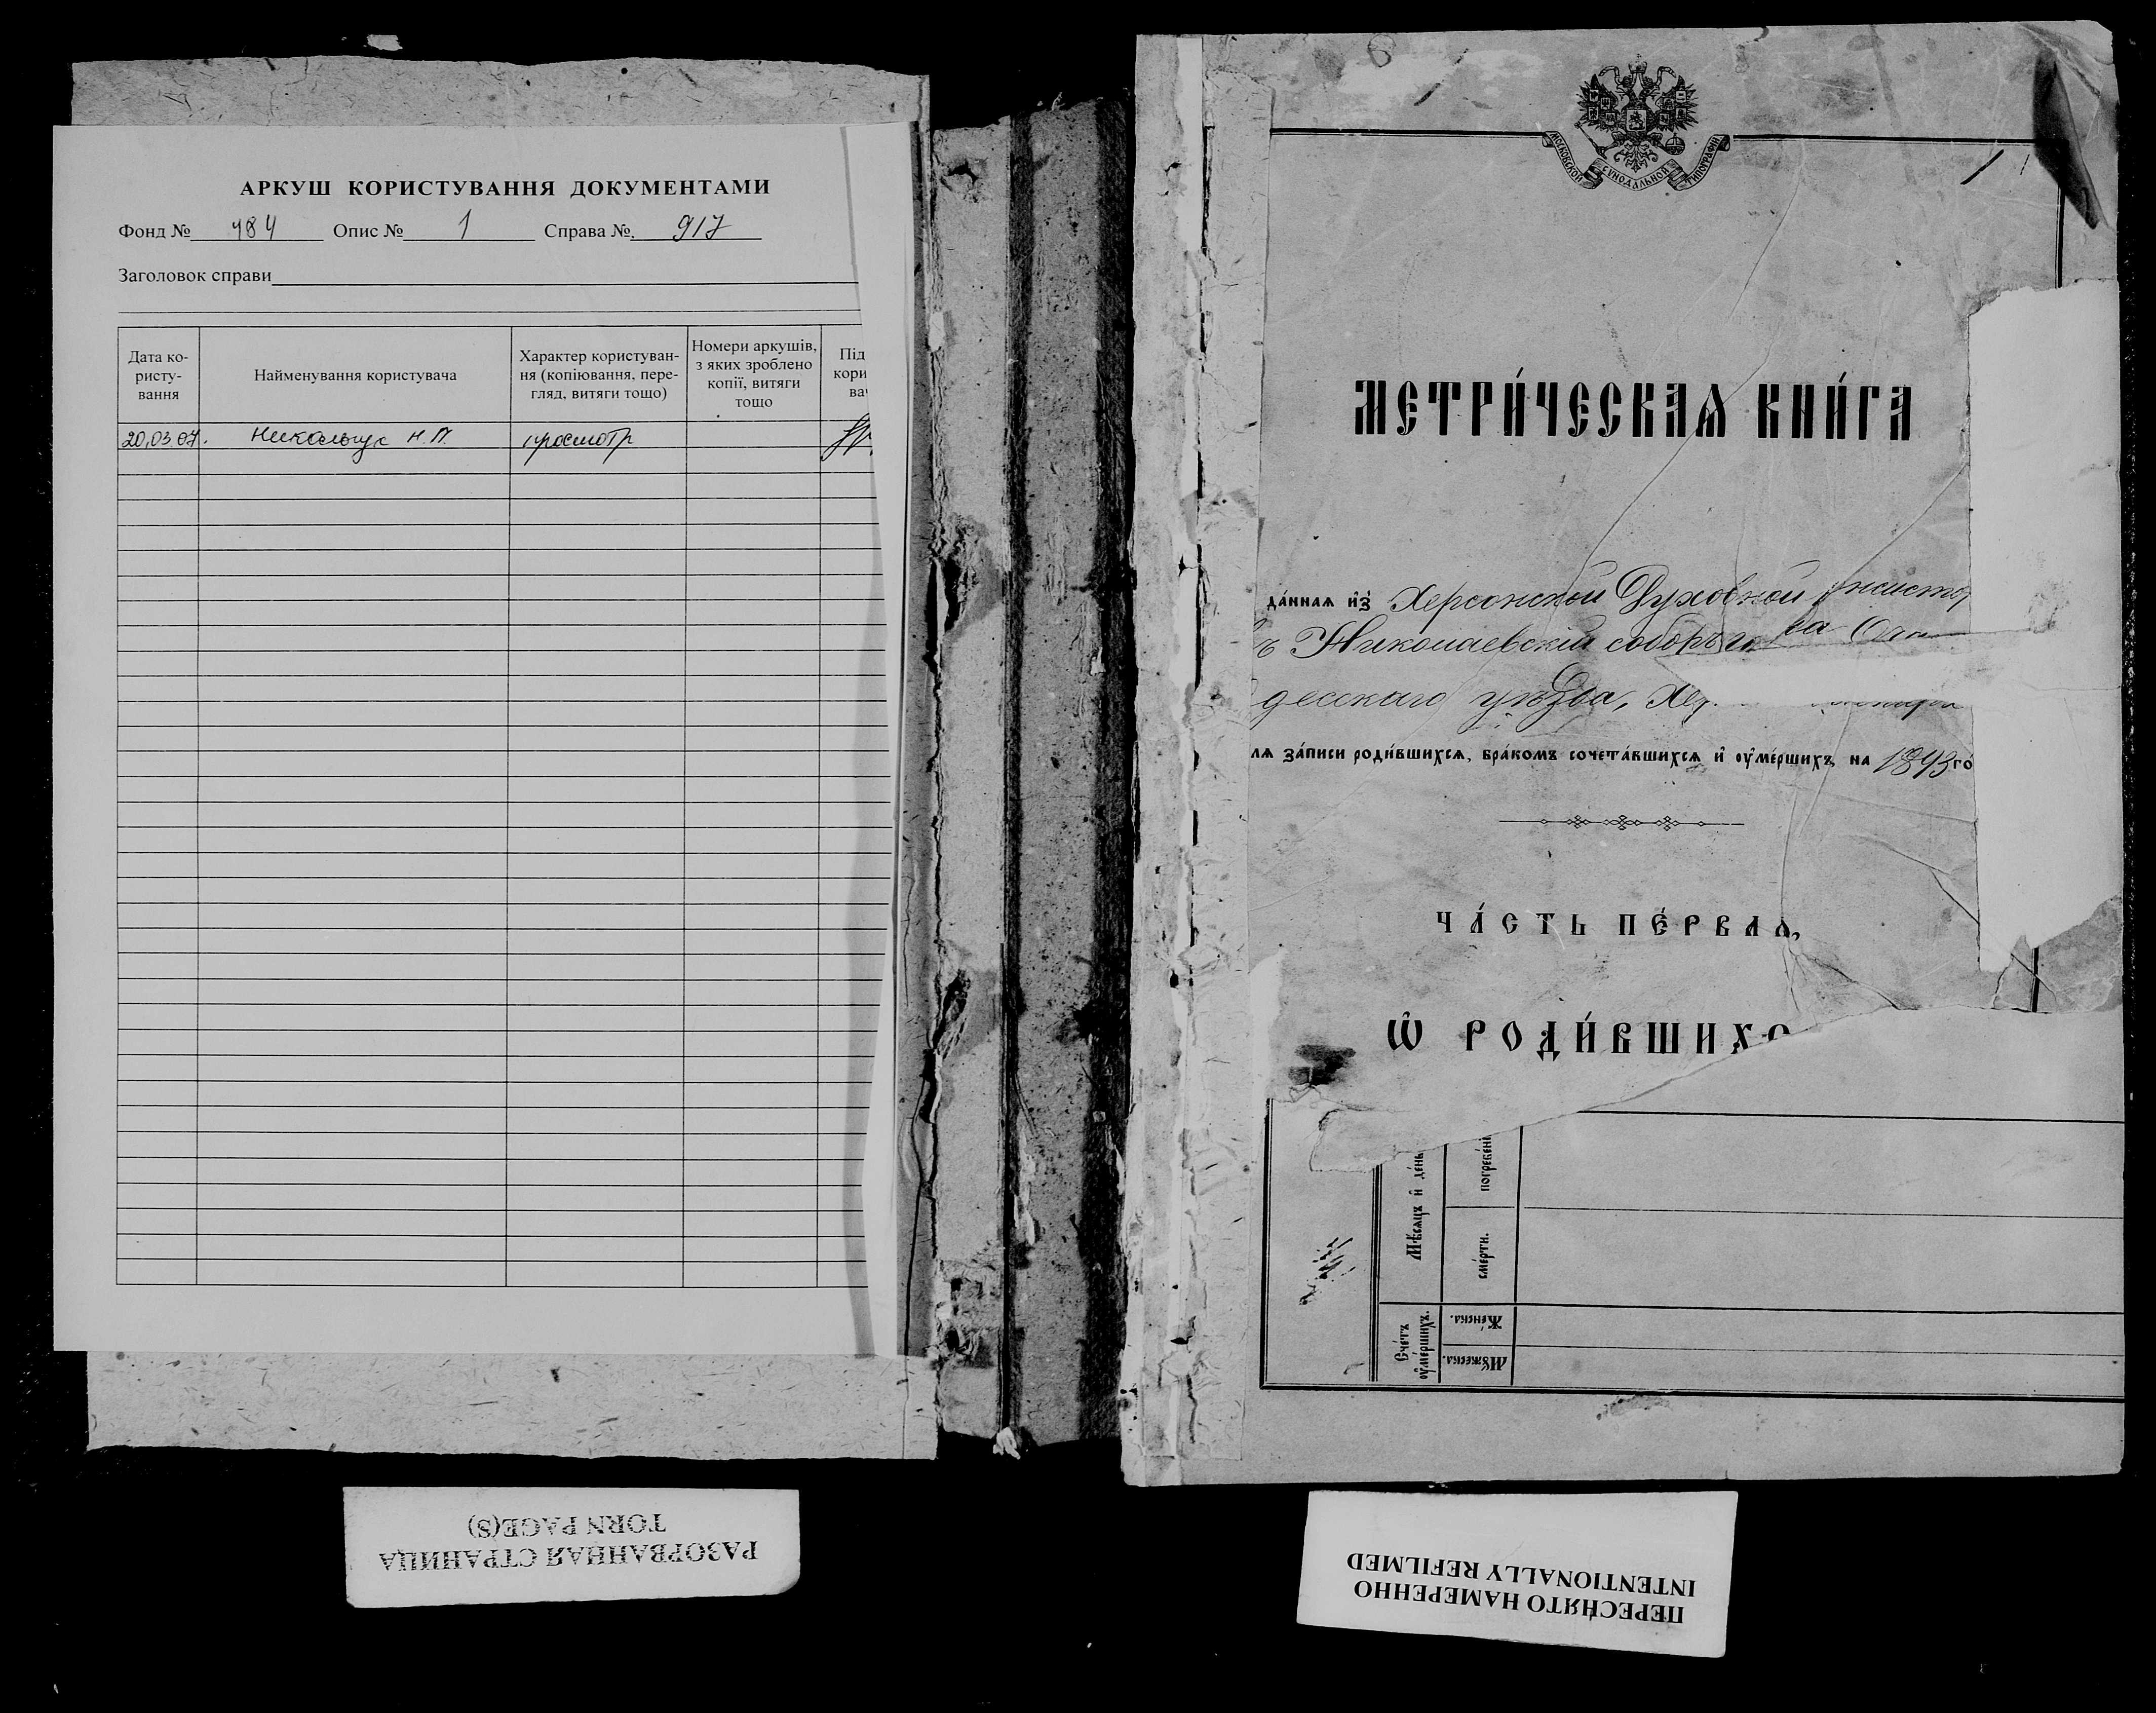 АРКУШ КОРИСТУВАННЯ ДОКУМЕНТАМИ
Фонд № 484 Опис № 1 Справа № 917
Заголовок справи
Дата ко-
ристу-
вання
Найменування користувача
Характер користуван-
ня (копіювання, пере-
гляд, витяги тощо)
Номери аркушів,
з яких зроблено
копії, витяги
тощо
Під
кори
ва
20.03.07. Никольчук Н.П. просмотр
РАЗОРВАННАЯ СТРАНИЦА
TORN PAGE(S)
МОСКОВСКОЙ СѴНОДАЛЬНОЙ ТИПОГРАФІИ
1
МЕТРИ́ЧЕСКАѦ КНИ́ГА
да́ннаѧ и҆з̾ Херсонской Духовной нсисто
ъ Николаевскій соборъ го ва Оча
десскаго уѣзда, Хер
лѧ за́писи роди́вшихсѧ, бра́комъ сочета́вшихсѧ и҆ оу҆ме́ршихъ, на 1893 го́
ЧА́СТЬ ПЕ́РВАѦ,
Ѡ҆ РОДИ́ВШИХС
Мѣ́сѧцъ и҆ де́нь
погребе́н
сме́рти.
Сче́тъ
оу҆ме́ршихъ.
Же́нска.
Мꙋ́жеска.
ПЕРЕСНЯТО НАМЕРЕННО
INTENTIONALLY REFILMED